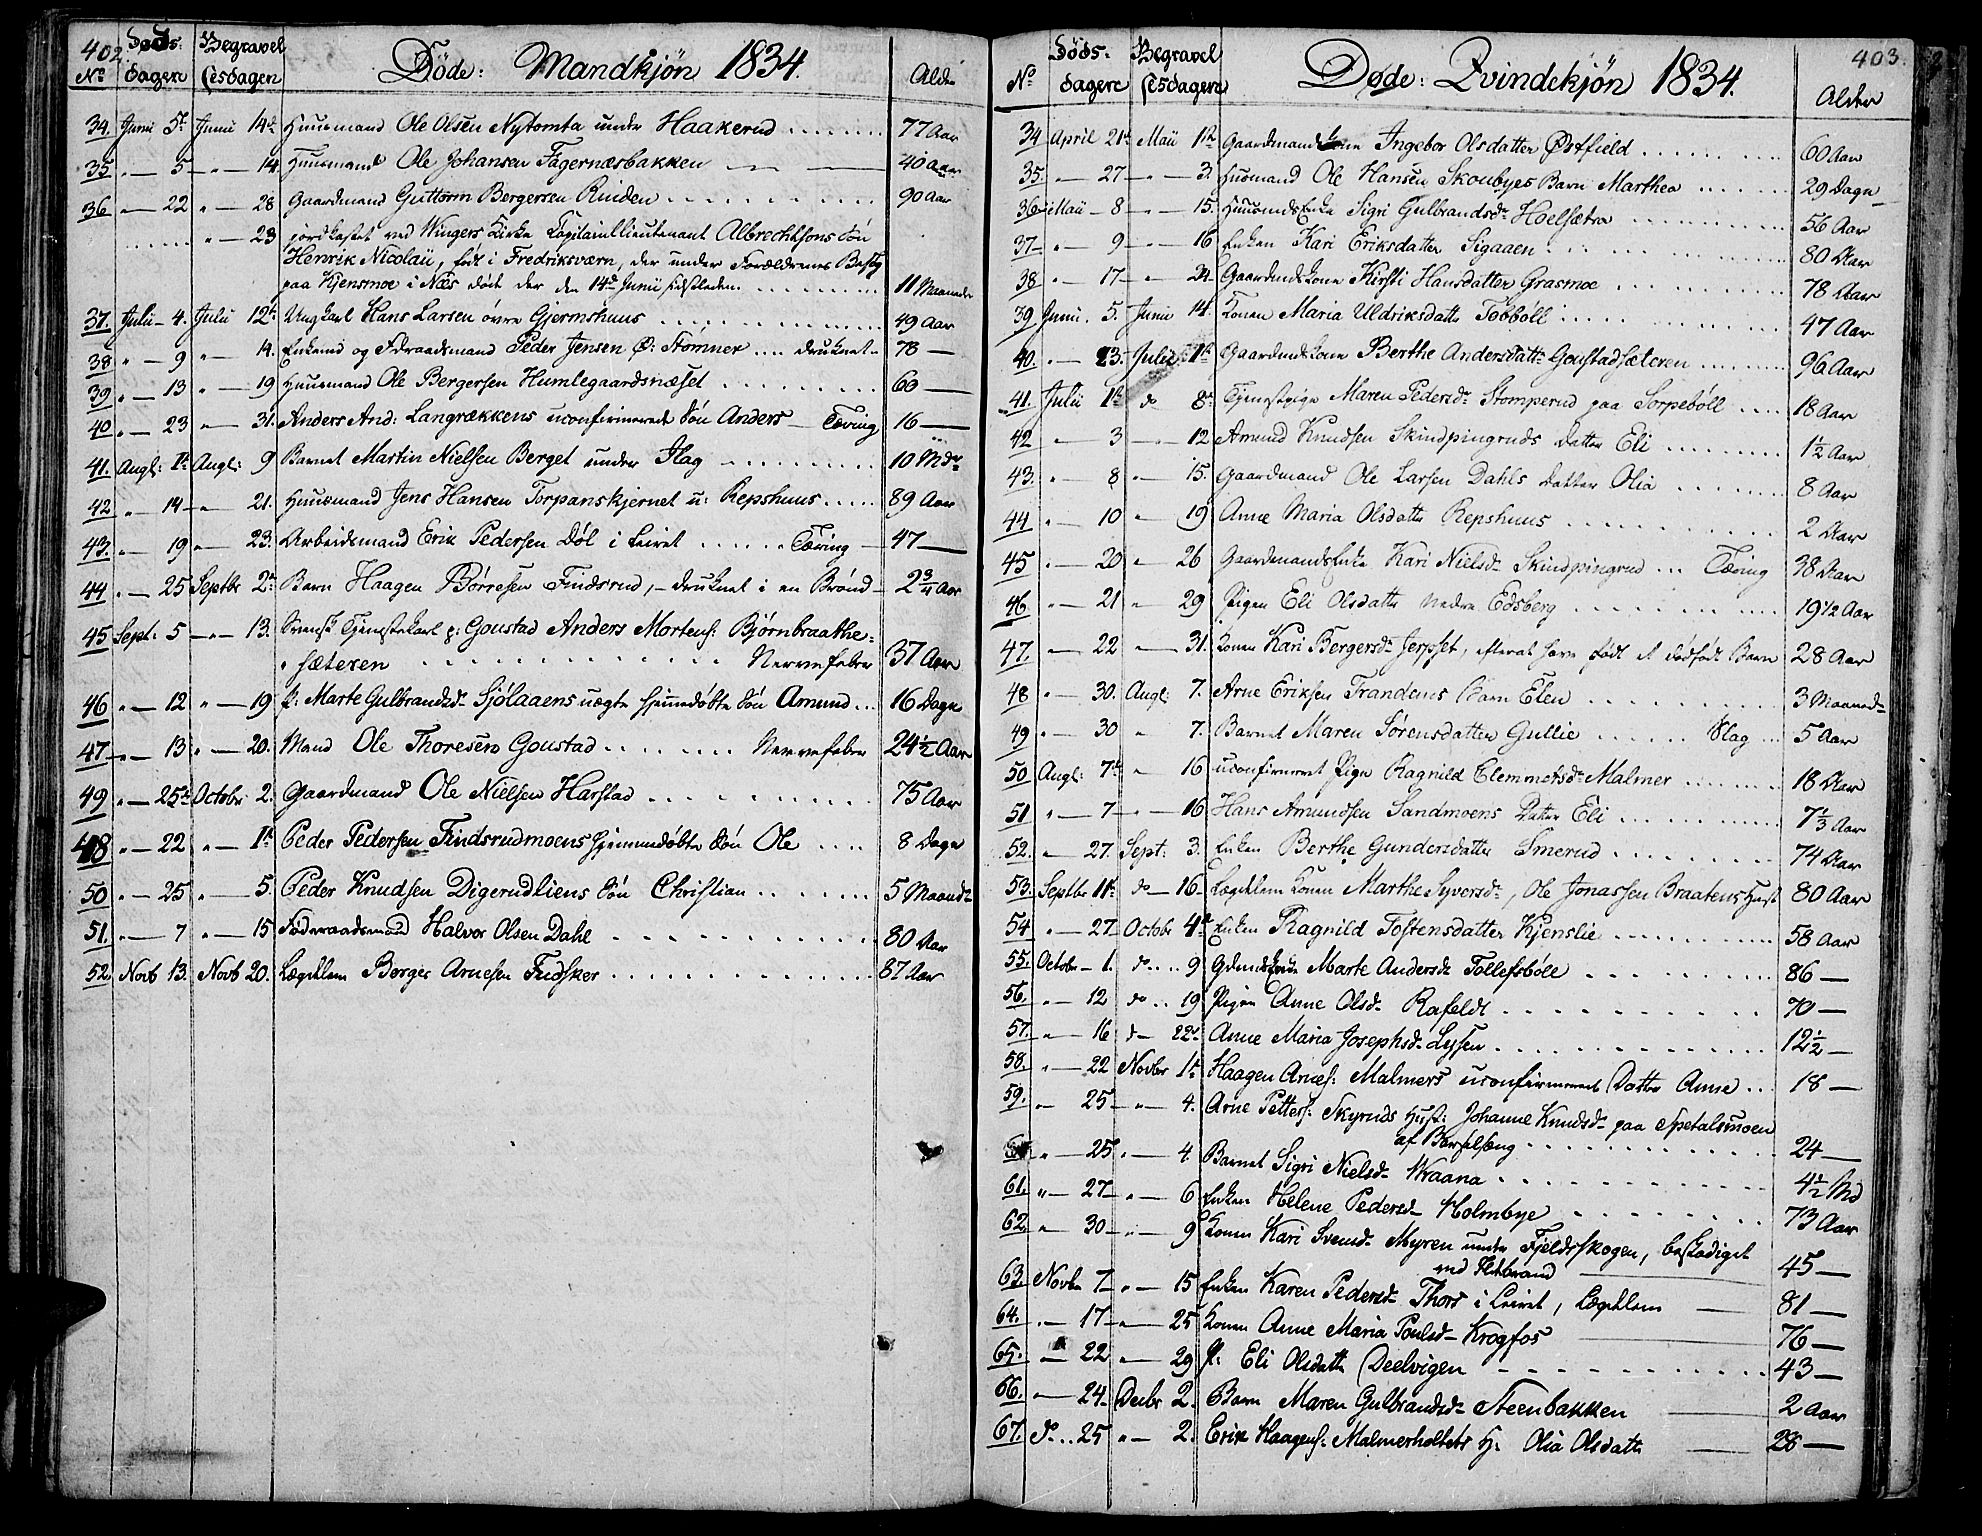 402.
Nº Døds- dagen Begravel sesdagen Døde: Mandkjön 1834. Alder
34. Junii 5te Junii 14de Huusmand Ole Olsen Nytomta under Haakerud 77 Aar
35 " — 5 " — 14 Huusmand Ole Johansen Fagernæsbakken 40 Aar
36 " — 22 " — 28 Gaardmand Guttorm Bergersen Runden 90 Aar
" — 23 jordkastet ved Wingers Kirke Capitainllieutenant Albrechtsons Søn
Henrik Nicolaii, født i Fredriksværn, der under Forældrenes Besøg
paa Kjensmoe i Næs døde der den 14de Junii sidstleden. 11 Maaneder
37. Julii - 4. Julii 12te Ungkarl Hans Larsen övre Gjermshuus 49 Aar
38 " — 9 " — 14. Enkemd og Föderaadsmand Peder Jensen Ø: Stømner .... druknet 78 —
39 " — 13 " — 19 Huusmand Ole Bergersen Humlegaardsnæset 60 —
40 " — 23 " — 31. Anders And: Langrækkens uconfirmerede Søn Anders — Tæring 16 —
41. Augl: 1te Augl: 9 Barnet Martin Nielsen Berget under Ilag 10 Mdr
42 " — 14 " — 21. Huusmand Jens Hansen Torpanskjernet u: Repshuus 89 Aar
43. " — 19 " — 23. Arbeidsmand Erik Pedersen Döl i Leiret Tæring 47 —
44 " — 25 Septbr 2den Barn Haagen Börresen Findsrud, — druknet i en Brönd 2 3/4 Aar
45 Sept: 5 " — 13. Svensk Tjenestekarl p: Goustad Anders Mortens: Björnbraathe-
sæteren Nervefeber 37 Aar
46 " — 12 " — 19 P: Marte Gulbrandsdr Sjölaaens uægte hjemmedöbte Sön Amund 16 Dage
47 " — 13 " — 20. Mand Ole Thoresen Goustad Nervefeber 24 1/2 Aar
49 " — 25 Octobr 2. Gaardmand Ole Nielsen Harstad 75 Aar
48 " — 22 " — 1te Peder Pedersen Findsrudmoens hjemmedöbte Søn Ole 8 Dage
50 " — 25 " — 5. Peder Knudsen Digerudliens Sön Christian 5 Maand:
51. " — 7 " — 15 Föderaadsmand Halvor Olsen Dahl 80 Aar
52. Novb 13. Novb 20. Lægdslem Borger Arnesen Fudsker 87 Aar
403.
Nº Döds- dagen Begravel sesdagen Døde: Qvindekjön 1834. Alder
34 April 21de Maii 1te Gaardmandskone Ingebor Olsdatter Østfield 60 Aar
35. " — 27 " — 3. Huusmand Ole Hansen Skoubyes Barn Marthea 29 Dage
36 Maii — 8 " — 15. Huusmds Enke Sigri Gulbrandsdr Hoelsætra 56 Aar
37 " — 9 " — 16 Enken Kari Eriksdatter Sigaaen 80 Aar
38 " — 17 " — 24. Gaardmdskone Kirsti Hansdatter Grasmoe 78 Aar
39 Junii. 5. Junii 14. Konen Maria Uldriksdattr Tobböll 47 Aar
40. " — 23. Julii 1te Gaardmdskone Berthe Andersdattr Goustadsæteren 96 Aar
41. Julii 1te do 8de Tjenestpige Maren Pedersdr Stomperud paa Sorpeböll 18 Aar
42 " — 3 " — 12 Amund Knudsen Skindpingruds datter Eli 1 1/2 Aar
43. " — 8 " — 15. Gaardmand Ole Larsen Dahls datter Olia 8 Aar
44 " — 10 " — 19 Anne Maria Olsdattr Repshuus 2 Aar
45 " — 20 " — 26 Gaardmands Enke Kari Nielsdr Skindpingrud ... Tæring 38 Aar
46. " — 21 " 29 Pigen Eli Olsdattr nedre Edsberg 19 1/2 Aar
47. " — 22 " — 31. Konen Kari Bergersdr Jerpset, efterat have födt et dödfödt Barn 28 Aar
48 " — 30. Augl: 7. Arne Eriksen Trandems Barn Elen 3 Maaned
49 " — 30 " 7. Barnet Maren Sörensdatter Gullie Slag 5 Aar
50 Augl: 7de " 16 uconfirmeret Pige Ragnild Clemmetsdr Malmer 18 Aar
51 " — 7 " — 16 Hans Amundsen Sandmoens Datter Eli 7 1/3 Aar
52. " — 27. Sept: 3. Enken Berthe Gundersdatter Smerud 74 Aar
53. Septbr 11te do — 16. Lægdslem Konen Marthe Syversdr, Ole Jonassen Braatens Hust 80 Aar
54 " — 27 Octobr 4de Enken Ragnild Tostensdatter Kjenslie 58 Aar
55. Octobr — 1. do .... 9 Gdmdskone Marte Andersdr Tollefsböll 86 —
56. " — 12 do .. 19 Pigen Anne Olsdr Rafeldt 70 —
57. " — 16 do — 22de Anne Maria Josephsdr Lyssen 12 1/2 —
58. " — 22 Novbr 1te Haagen Arnes: Malmers uconfirmeret Datter Anne 18 —
59. " — 25 " — 4. Arne Petters: Skyruds Hust: Johanne Knudsdr paa Spetalsmoen
af Barselseng 24 —
" — 25 " — 4. Barnet Sigri Nielsdr Vraana 4 1/2 Md
61. " — 27 " — 6 Enken Helene Pedersdr Holmbye 73 Aar
62. " — 30 " — 9 Konen Kari Svensdr Myren under Fjeldskogen, beskadiget
ved Ildebrand 45 —
63. Novbr 7 " — 15 Enken Karen Pedersdr Thors i Leiret, Lægdslem 81 —
64. " — 17 " — 25 Konen Anne Maria Poulsdr Krogfos 76 —
65. " — 22 " — 29 P: Eli Olsdattr Deelvigen 43 —
66. " — 24 Decbr 2. Barn Maren Gulbrandsdr Steenbakken 2 Aar
67. do .. 25 " — 2. Erik Haagens: Malmerholtets H: Olia Olsdattr 28 —